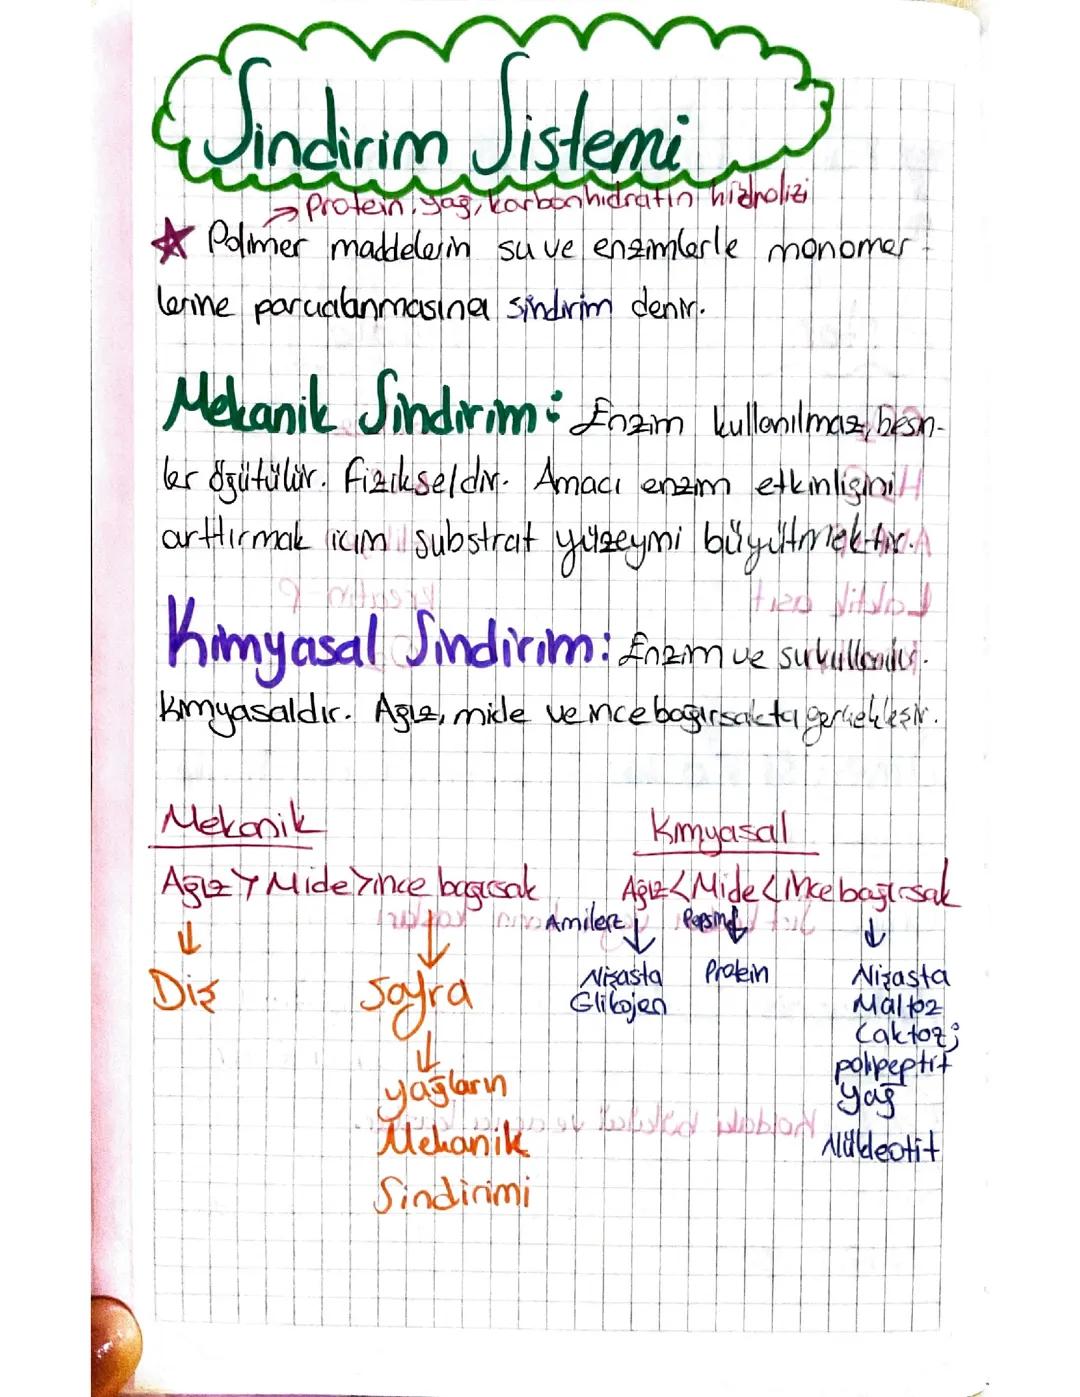 Sindirim Sistemi
→ Protein, yağ, karbonhidratın hidrolizi
★ Polimer maddelerin su ve enzimlerle monomer-
lerine parçalanmasına sindirim denir.
Mekanik Sindirim: Enzim kullanılmaz, besin-
ler öğütülür. Fizikseldir. Amacı enzim etkinliğini
arttırmak için substrat yüzeyini büyütmektir.
Kimyasal Sindirim: Enzim ve su kullanılır.
Kimyasaldır. Ağız, mide ve ince bağırsakta gerçekleşir.
Mekanik
Kimyasal
Ağız > Mide > ince bağırsak
Ağız < Mide < ince bağırsak
Diş
Safra
yağların
Mekanik
Sindirimi
Amilaz
Nişasta
Glikojen
Pepsin
Protein
Nişasta
Maltoz
Laktoz;
polipeptit
yağ
Nükleotit